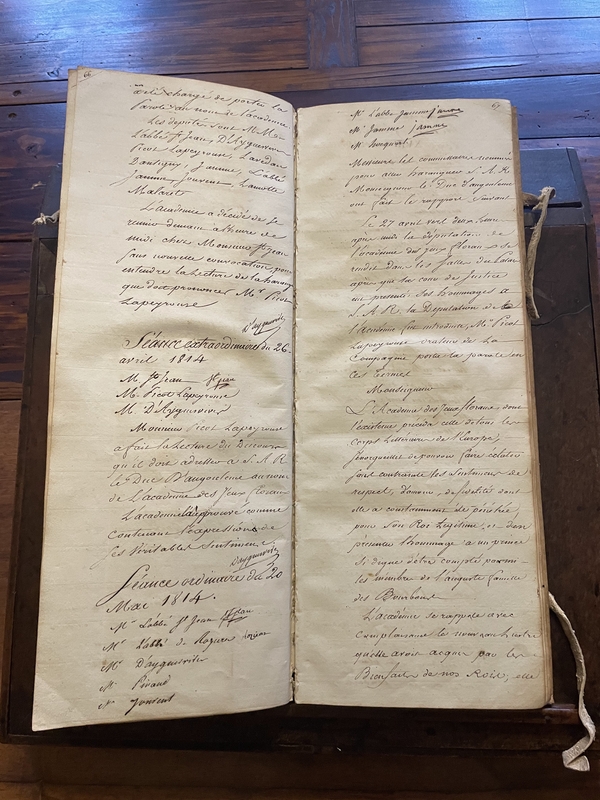 66
été chargé de porter la
parole au nom de l'académie
Les députés sont M.M.
L'abbé St Jean, D'Ayguesvives
Picot Lapeyrouse, Lavedan
Jamme, L'abbé
Jamme, Jouvent, Lamothe
Malaret
L'académie a décidé de se
reunir demain à l'heure de
midi chez Monsieur St Jean
sans nouvelle convocation, pour
entendre la Lecture de la harangue
que doit prononcer Mr Picot
Lapeyrouse
D'ayguesvives
Séance extraordinaire du 26
avril 1814
M. St Jean St jean
M. Picot Lapeyrouse
M. D'Ayguesvives
Monsieur Picot Lapeyrouse
a fait la Lecture du Discours
qu'il doit adresser à S. A. R.
le Duc D'angouleme au nom
de L'académie des Jeux floraux
L'académie l'a approuvé comme
Contenant l'expression de
ses véritables sentimens
D'ayguesvives
Séance ordinaire du 20
Mai 1814.
Mr L'abbé St Jean St jean
Mr L'abbé de
Mr D'ayguesvives
Mr Pinaud
Mr Jouvent
67
Mr L'abbé Jamme jamme
Mr Jamme jamme
Mr
Messieurs les commissaires nommés
pour aller haranguer S. A. R.
Monseigneur le Duc d'angouleme
ont fait le rapport suivant
Le 27 avril vers deux heures
après midi la députation de
l'académie des jeux floraux se
rendit dans les salles du palais
après que les cours de justice
eut presenté ses hommages à
S. A. R. la Deputation de
l'académie fut introduite, Mr Picot
Lapeyrouse orateur de La
Compagnie porta la parole en
ces termes
Monseigneur
L'Académie des Jeux floraux dont
l'existence préceda celle de tous les
corps Litteraires de l'Europe,
s'enorgueillit de pouvoir faire éclater
sans contrainte les sentimens de
respect, d'amour, de fidélité dont
elle a constamment été pénétrée
pour son Roi Legitime, et d'en
presenter l'hommage à un prince
si digne d'être compté parmi
les membres de l'auguste famille
des Bourbons
L'académie se rappele avec
Complaisance le nouveau lustre
qu'elle avoit acquis par les
Bienfaits de nos Rois, elle